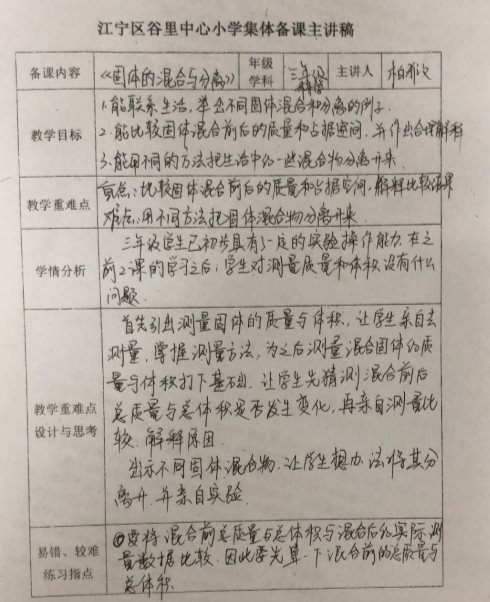 江宁区谷里中心小学集体备课主讲稿
备课内容 《固体的混合与分离》 年级学科 三年级科学 主讲人
教学目标
1.能联系生活，举出不同固体混合和分离的例子.
2.能比较固体混合前后的质量和占据空间，并作出合理解释
3.能用不同的方法把生活中的一些混合物分离开来.
教学重难点
重点：比较固体混合前后的质量和占据空间，解释比较结果
难点：用不同方法把固体混合物分离开来
学情分析
三年级学生已初步具有了一定的实验操作能力，在之
前2课的学习之后，学生对测量质量和体积没有什么
问题.
教学重难点
设计与思考
首先引出测量固体的质量与体积，让学生亲自去
测量，掌握测量方法，为之后测量混合固体的质
量与体积打下基础.让学生先猜测混合前后
总质量与总体积是否发生变化，再亲自测量比
较，解释原因.
出示不同固体混合物，让学生想办法将其分
离开，并亲自实验.
易错、较难
练习指点
①要将混合前总质量与总体积与混合后的实际测
量数据比较，因此要先算一下混合前的总质量与
总体积